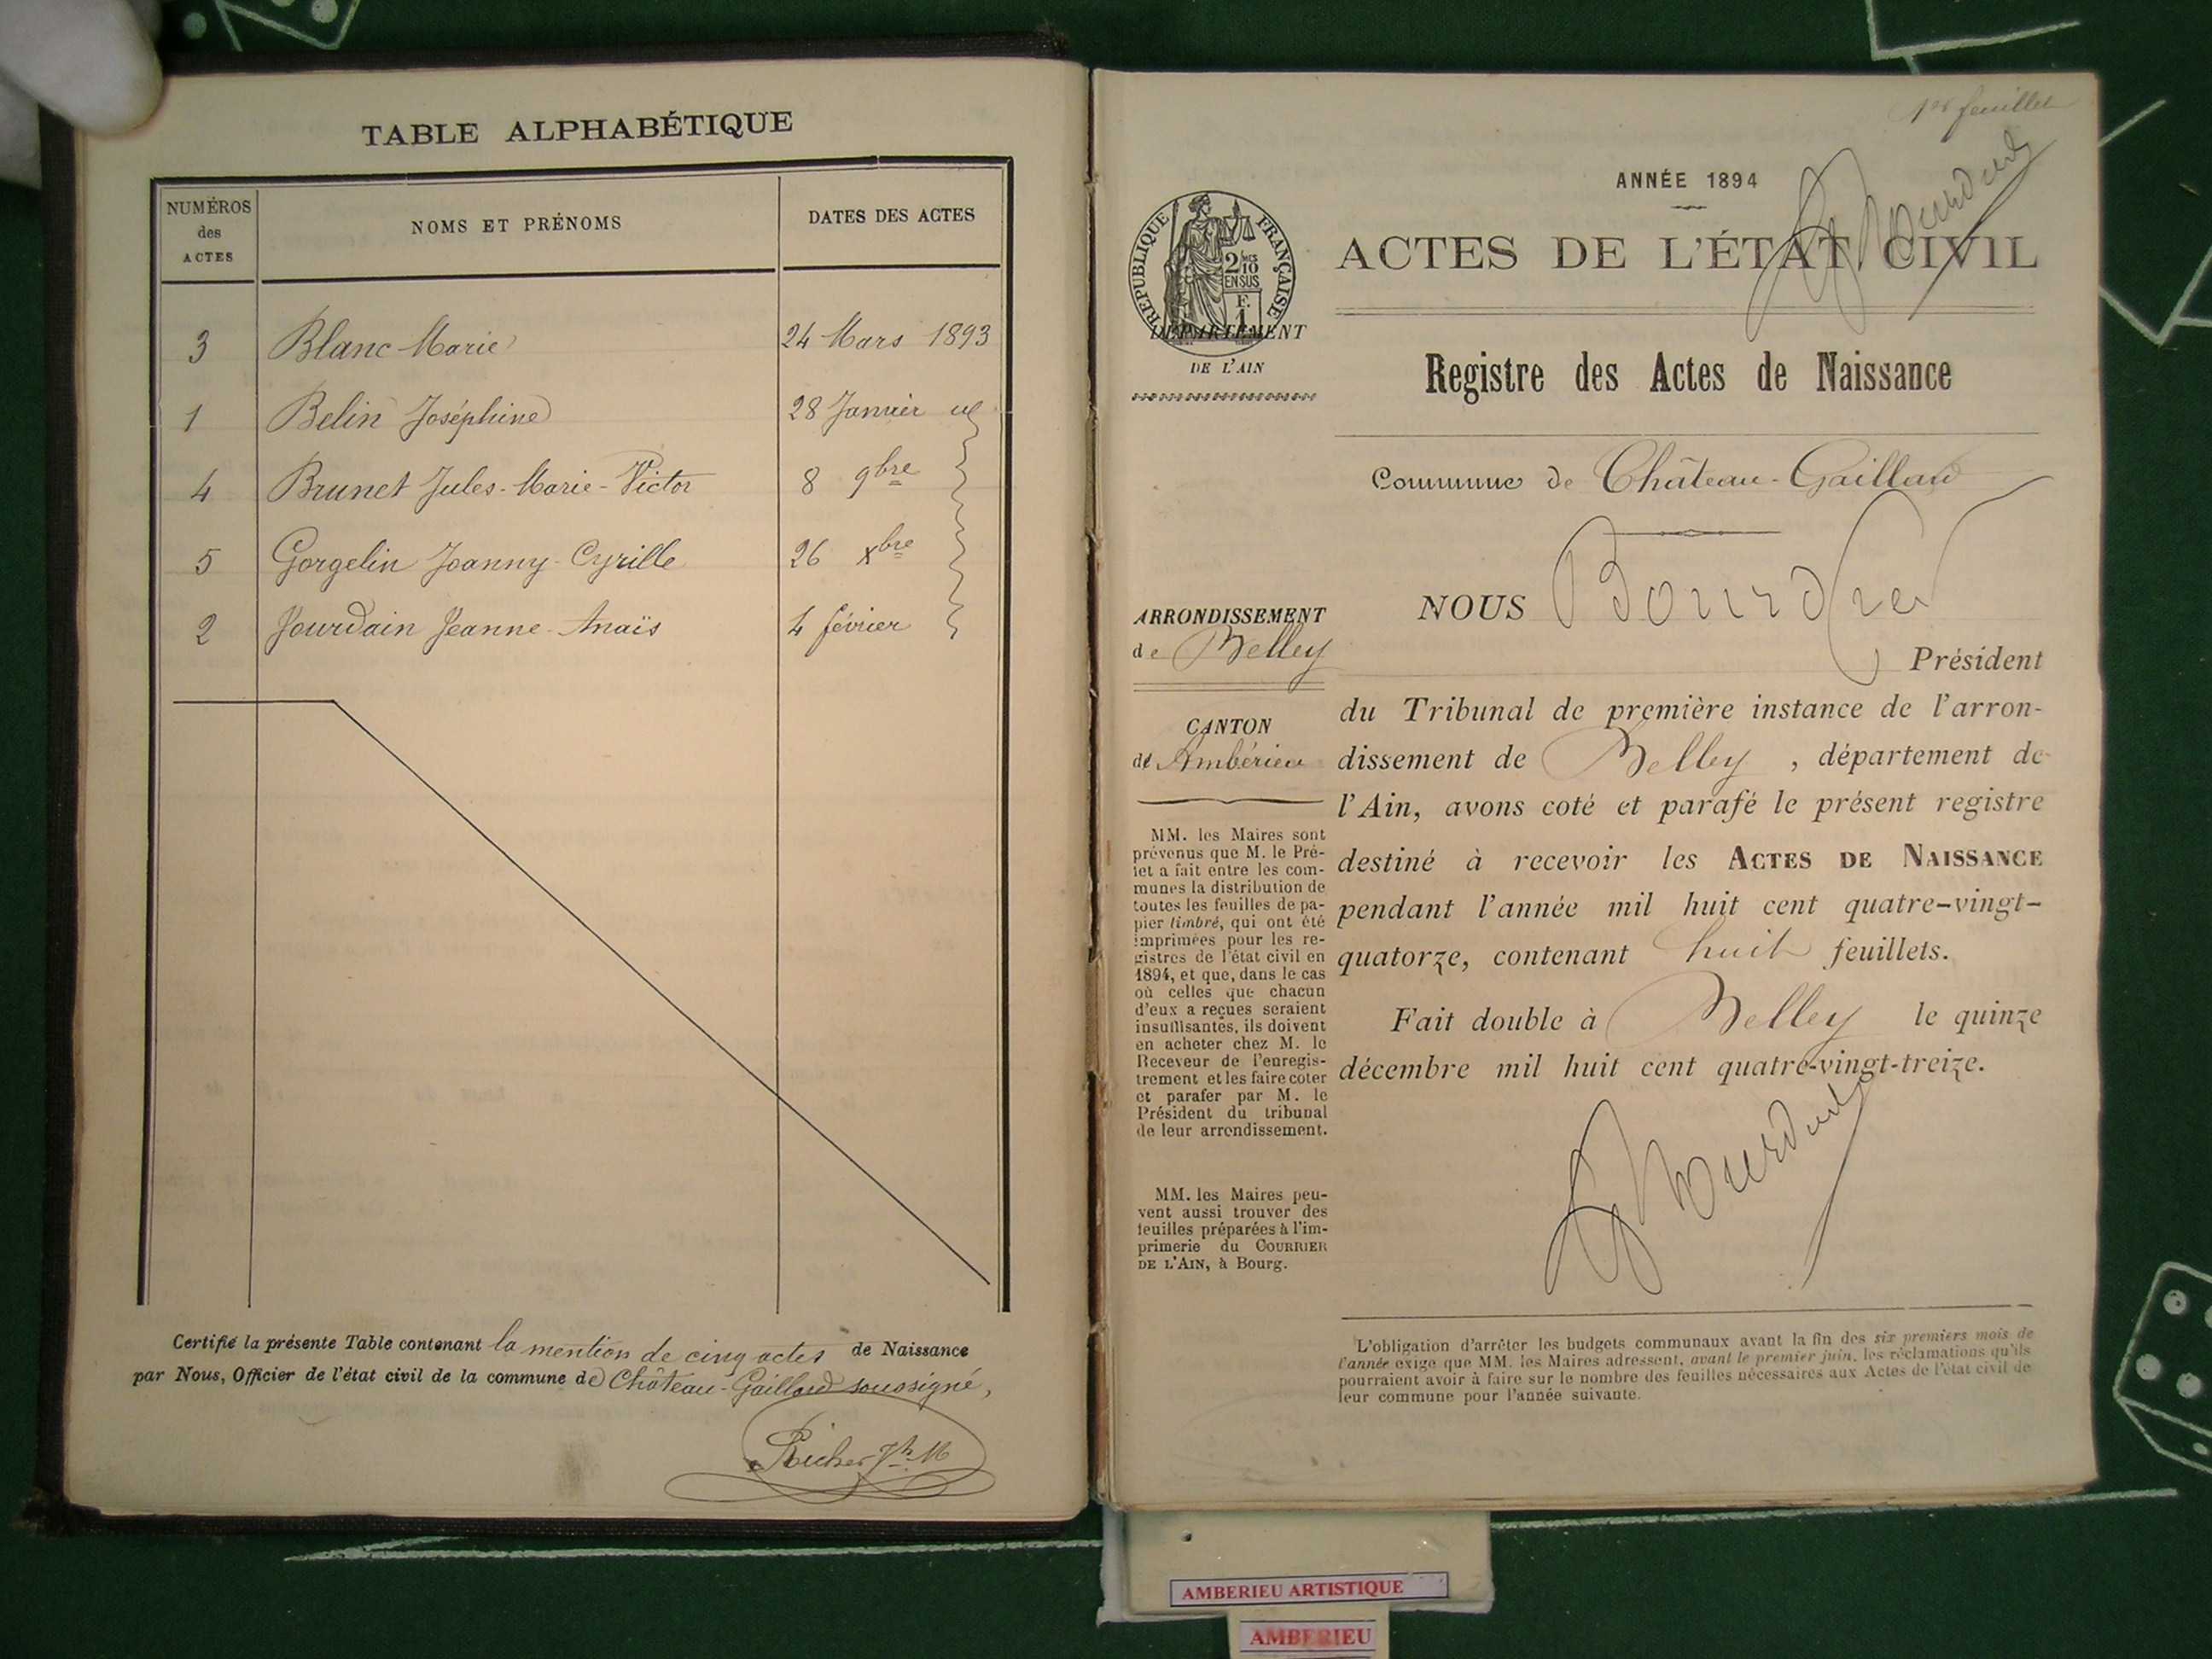 TABLE ALPHABÉTIQUE
NUMÉROS des ACTES
NOMS ET PRÉNOMS
DATES DES ACTES
3 Blanc Marie 24 Mars 1893
1 Belin Joséphine 28 Janvier
4 Brunet Jules-Marie-Victor 8 9bre
5 Gorgelin Joanny-Cyrille 26 xbre
2 Jourdain Jeanne-Anaïs 4 février
Certifié la présente Table contenant la mention de cinq actes de Naissance
par Nous, Officier de l'état civil de la commune de Château-Gaillard soussigné,
1er feuillet
ANNÉE 1894
RÉPUBLIQUE FRANÇAISE
2 10
EN SUS
F.
1
DÉPARTEMENT
DE L'AIN
ACTES DE L'ÉTAT CIVIL
Registre des Actes de Naissance
Commune de Château-Gaillard
ARRONDISSEMENT
de Belley
CANTON
de Ambérieu
MM. les Maires sont
prévenus que M. le Pré-
fet a fait entre les com-
munes la distribution de
toutes les feuilles de pa-
pier timbré, qui ont été
imprimées pour les re-
gistres de l'état civil en
1894, et que, dans le cas
où celles que chacun
d'eux a reçues seraient
insuffisantes, ils doivent
en acheter chez M. le
Receveur de l'enregis-
trement et les faire coter
et parafer par M. le
Président du tribunal
de leur arrondissement.
MM. les Maires peu-
vent aussi trouver des
feuilles préparées à l'im-
primerie du COURRIER
DE L'AIN, à Bourg.
NOUS
Président
du Tribunal de première instance de l'arron-
dissement de Belley, département de
l'Ain, avons coté et parafé le présent registre
destiné à recevoir les ACTES DE NAISSANCE
pendant l'année mil huit cent quatre-vingt-
quatorze, contenant huit feuillets.
Fait double à Belley le quinze
décembre mil huit cent quatre-vingt-treize.
L'obligation d'arrêter les budgets communaux avant la fin des six premiers mois de
l'année exige que MM. les Maires adressent, avant le premier juin, les réclamations qu'ils
pourraient avoir à faire sur le nombre des feuilles nécessaires aux Actes de l'état civil de
leur commune pour l'année suivante.
AMBERIEU ARTISTIQUE
AMBERIEU